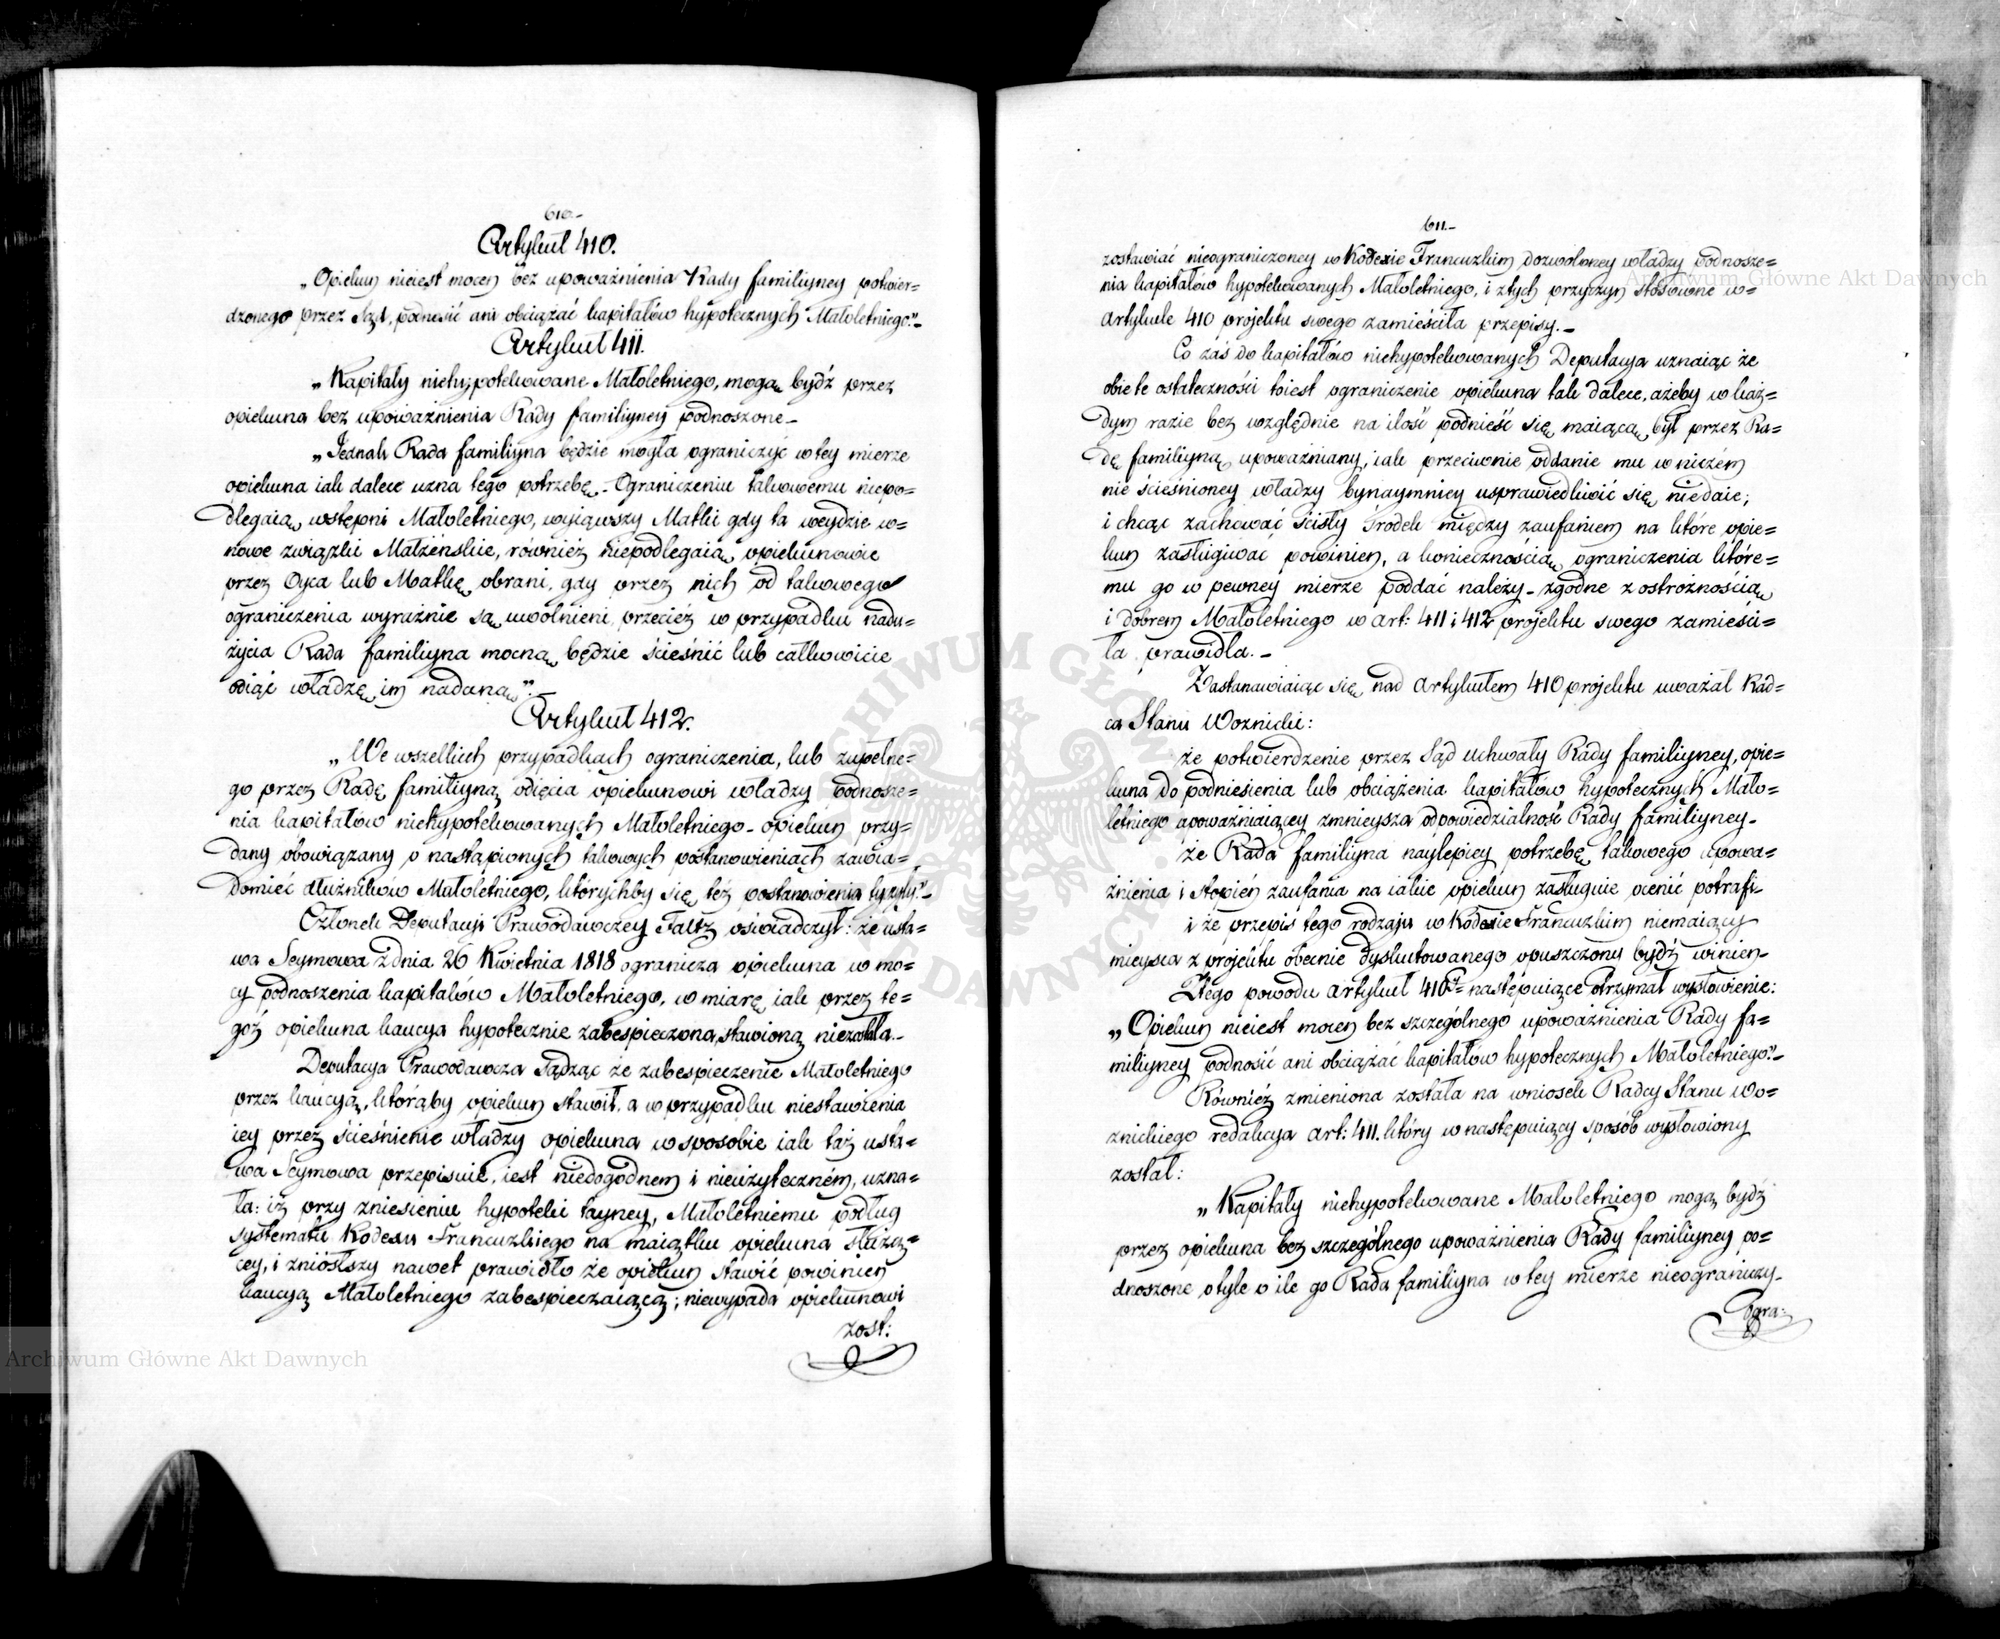 610.-
Artykuł 410.
„Opiekun nieiest mocen bez upoważnienia Rady familiyney potwier=
dzonego przez Sąd, podnosić ani obciążać kapitałów hypotecznych Małoletniego."-
Artykuł 411.
„Kapitały niehypotekowane Małoletniego, mogą bydź przez
opiekuna bez upoważnienia Rady familiyney podnoszone-
„Jednak Rada familiyna będzie mogła ograniczyć w tey mierze
opiekuna iak dalece uzna tego potrzebę.- Ograniczeniu takowemu niepo=
dlegaią wstępni Małoletniego, wyiąwszy Matki gdy ta weydzie w=
nowe związki Małżeńskie, również niepodlegaią opiekunowie
przez Oyca lub Matkę obrani, gdy przez nich od takowego
ograniczenia wyraźnie są uwolnieni, przecież w przypadku nadu=
życia Rada familiyna mocną będzie ścieśnić lub całkowicie
odiąć władzę im nadaną".-
Artykuł 412.
„We wszelkich przypadkach ograniczenia, lub zupełne=
go przez Radę familiyną odięcia opiekunowi władzy podnosze=
nia kapitałów niehypotekowanych Małoletniego - opiekun przy=
dany obowiązany o nastąpionych takowych postanowieniach zawia=
domieć dłużników Małoletniego, którychby się też postanowienia tyczyły."-
Członek Deputacyi Prawodawczey Faltz oświadczył: że usta=
wa Seymowa z dnia 26 Kwietnia 1818 ogranicza opiekuna w mo=
cy podnoszenia kapitałów Małoletniego, w miarę iak przez te=
goż opiekuna kaucya hypotecznie zabespieczona, stawioną niezostała.-
Deputacya Prawodawcza sądząc że zabespieczenie Małoletniego
przez kaucyą, którąby opiekun stawił, a w przypadku niestawienia
iey przez ścieśnienie władzy opiekuna w sposobie iak taż usta=
wa Seymowa przepisuie, iest niedogodnem i nieużytecznem, uzna=
ła: iż przy zniesieniu hypoteki tayney, Małoletniemu podług
systematu Kodexu Francuzkiego na maiątku opiekuna służą=
cey, i zniósłszy nawet prawidło że opiekun stawić powinien
kaucyą Małoletniego zabespieczaiącą; niewypada opiekunowi
zost:
611.-
zostawiać nieograniczoney w Kodexie Francuzkim dozwoloney władzy podnosze=
nia kapitałów hypotekowanych Małoletniego, i z tych przyczyn stosowne w=
artykule 410 projektu swego zamieściła przepisy.-
Co zaś do kapitałów niehypotekowanych Deputacya uznaiąc że
obie te ostateczności toiest ograniczenie opiekuna tak dalece, ażeby w każ=
dym razie bez względnie na ilość podnieść się maiącą był przez Ra=
dę familiyną upoważniany, iak przeciwnie oddanie mu w niczém
nie ścieśnioney władzy bynaymniey usprawiedliwić się niedaie;
i chcąc zachować ścisły środek między zaufaniem na które opie=
kun zasługiwać powinien, a koniecznością ograniczenia które=
mu go w pewney mierze poddać należy - zgodne z ostrożnością
i dobrem Małoletniego w art: 411 i 412 projektu swego zamieści=
ła prawidła.-
Zastanawiaiąc się nad artykułem 410 projektu uważał Rad=
ca Stanu Woznicki:
że potwierdzenie przez Sąd uchwały Rady familiyney, opie=
kuna do podniesienia lub obciążenia kapitałów hypotecznych Mało=
letniego upoważniaiącey zmnieysza odpowiedzialność Rady familiyney-
że Rada familiyna naylepiey potrzebę takowego upowa=
żnienia i stopień zaufania na iakie opiekun zasługuie ocenić potrafi-
i że przepis tego rodzaju w Kodexie Francuzkim niemaiący
mieysca z projektu obecnie dyskutowanego opuszczony bydź winien-
Z tego powodu artykuł 410ty następuiące otrzymał wysłowienie:
„Opiekun nieiest mocen bez szczególnego upoważnienia Rady fa=
miliyney podnosić ani obciążać kapitałów hypotecznych Małoletniego."-
Również zmieniona została na wniosek Radcy Stanu Wo=
znickiego redakcya art: 411. który w następuiący sposób wysłowiony
został:
„Kapitały niehypotekowane Małoletniego mogą bydź
przez opiekuna bez szczególnego upoważnienia Rady familiyney po=
dnoszone o tyle o ile go Rada familiyna w tey mierze nieograniczy-
ogra:
Archiwum Główne Akt Dawnych
Archiwum Główne Akt Dawnych
ARCHIWUM GŁÓWNE AKT DAWNYCH